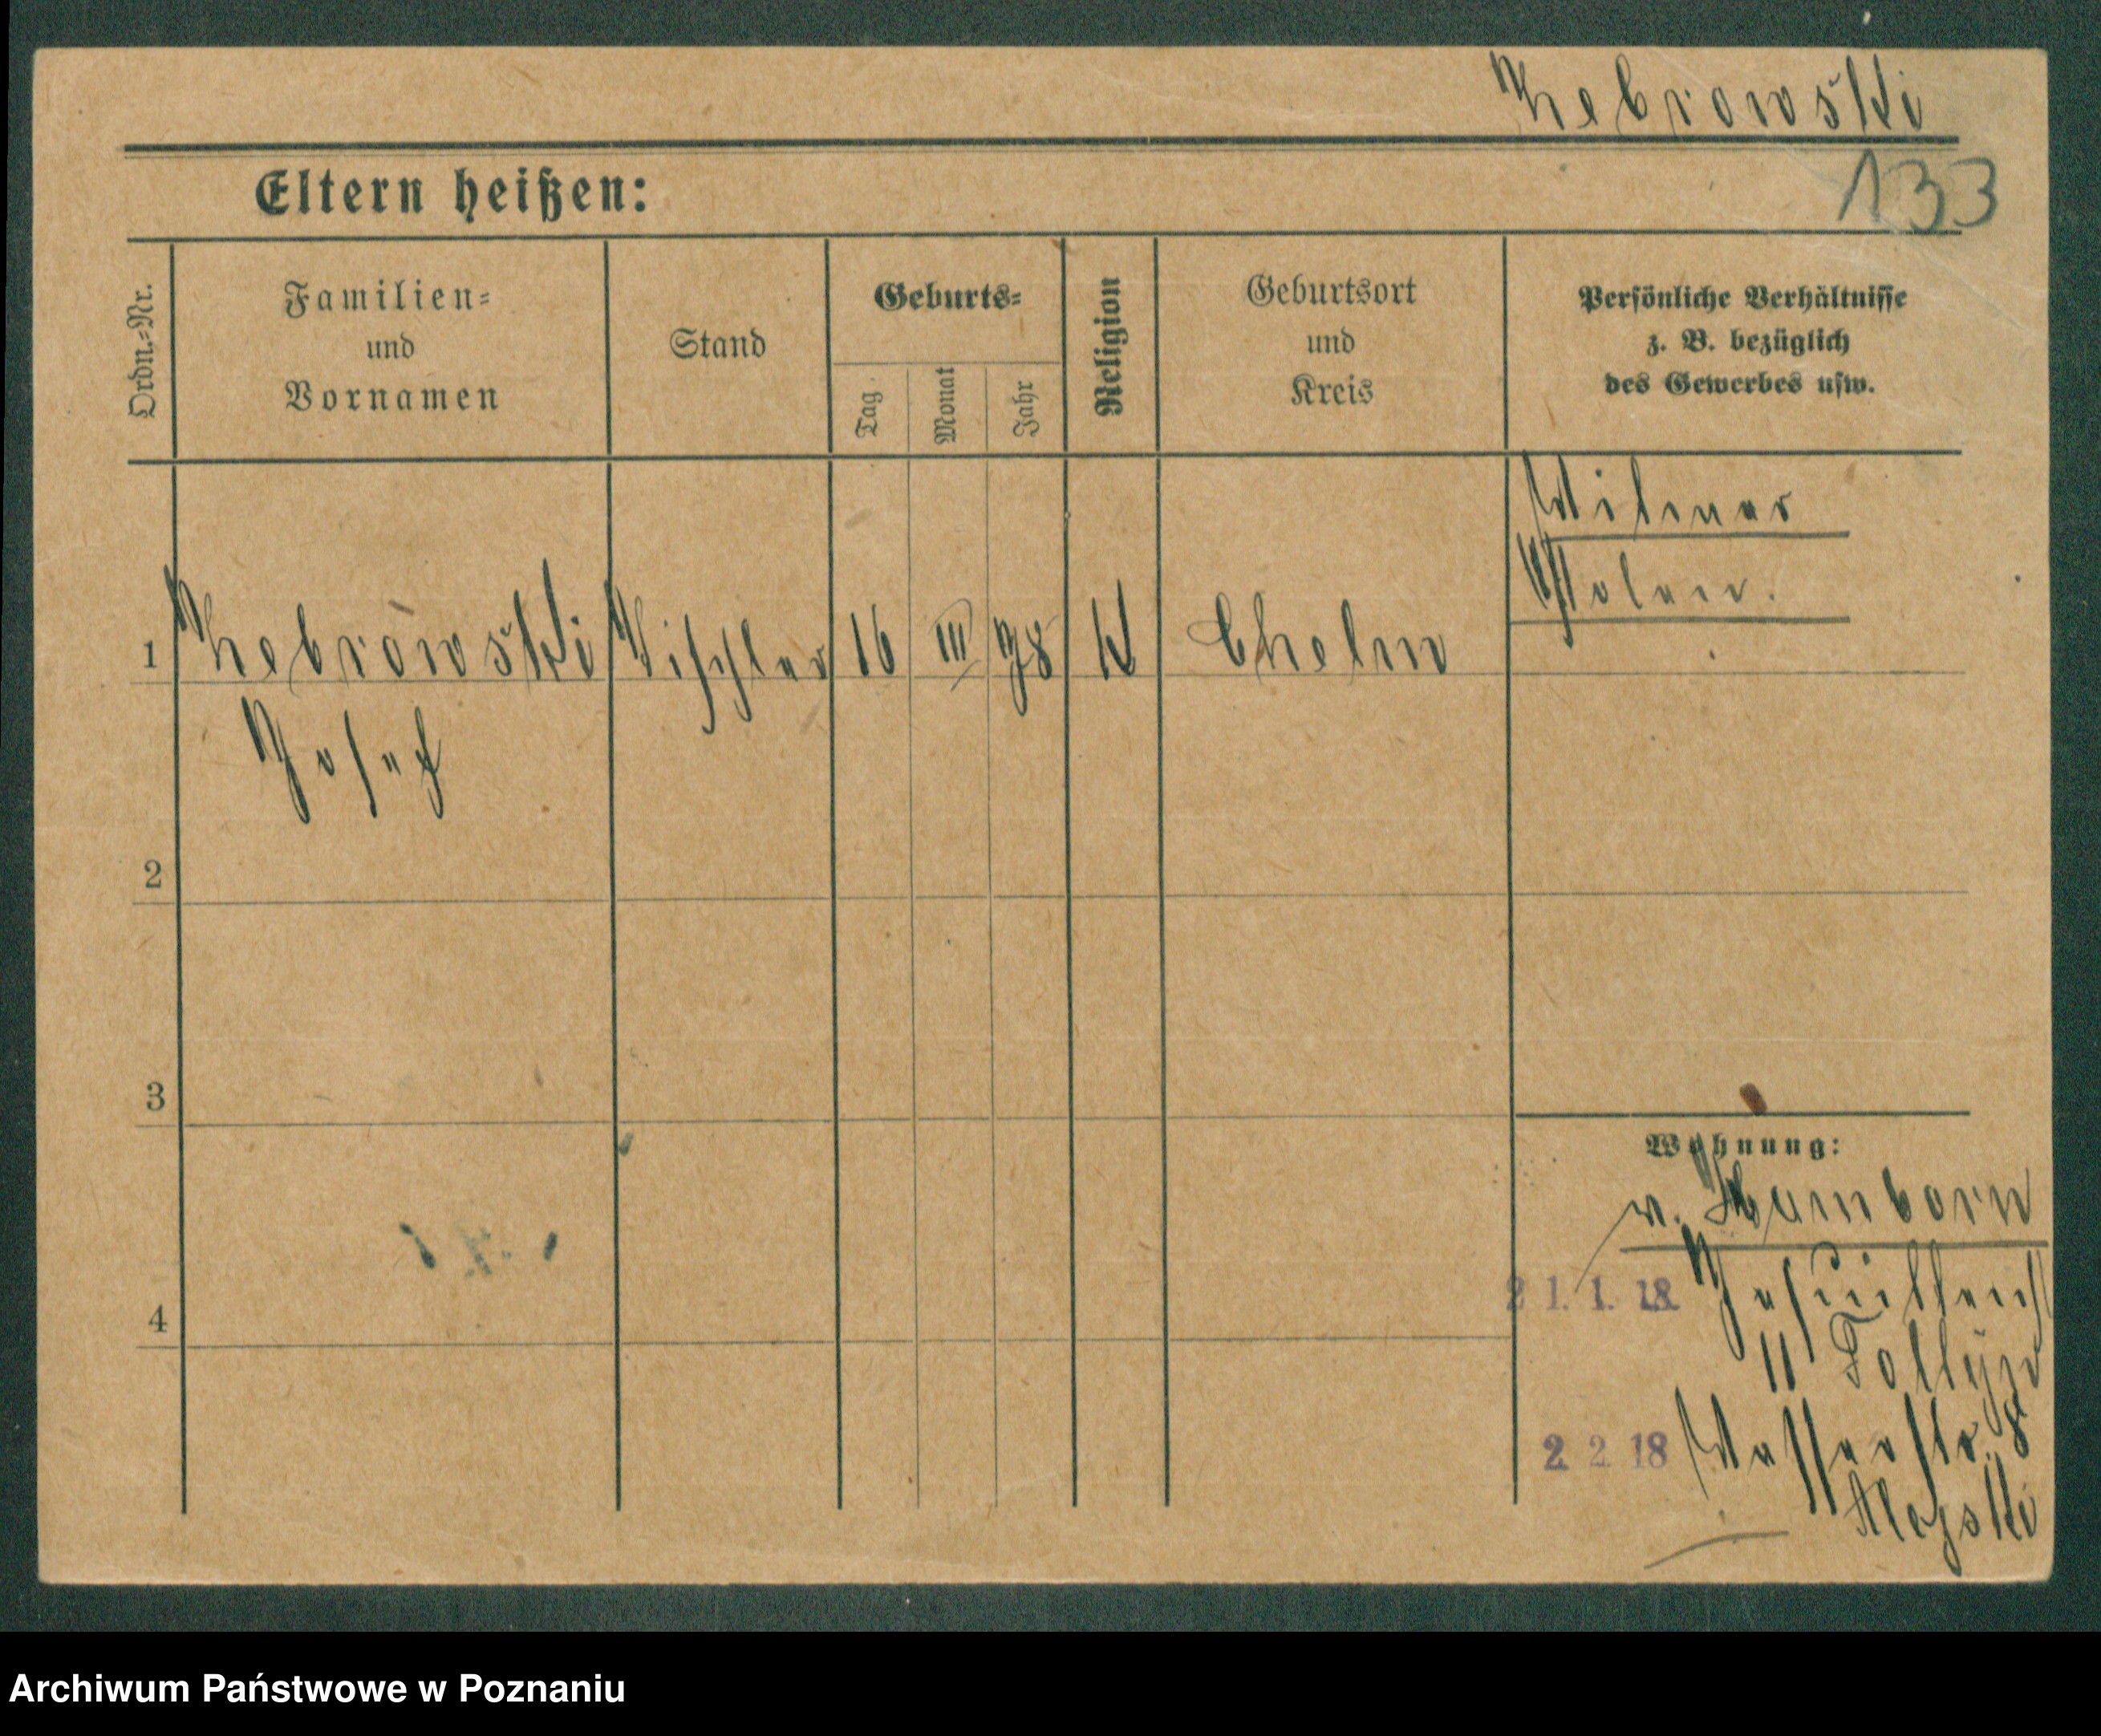 Zebrowski
133
Eltern heißen:
Ordn.=Nr.
Familien=
und
Vornamen
Stand
Geburts=
Tag
Monat
Jahr
Religion
Geburtsort
und
Kreis
Persönliche Verhältnisse
z. B. bezüglich
des Gewerbes usw.
Witwer
Polen.
1 Zebrowski Tischler 16 III 98 K Chelm
Josef
2
3
4
Wohnung:
v. Hamborn
21. 1. 18
11
2 2 18 Wasserstr. 8
Archiwum Państwowe w Poznaniu